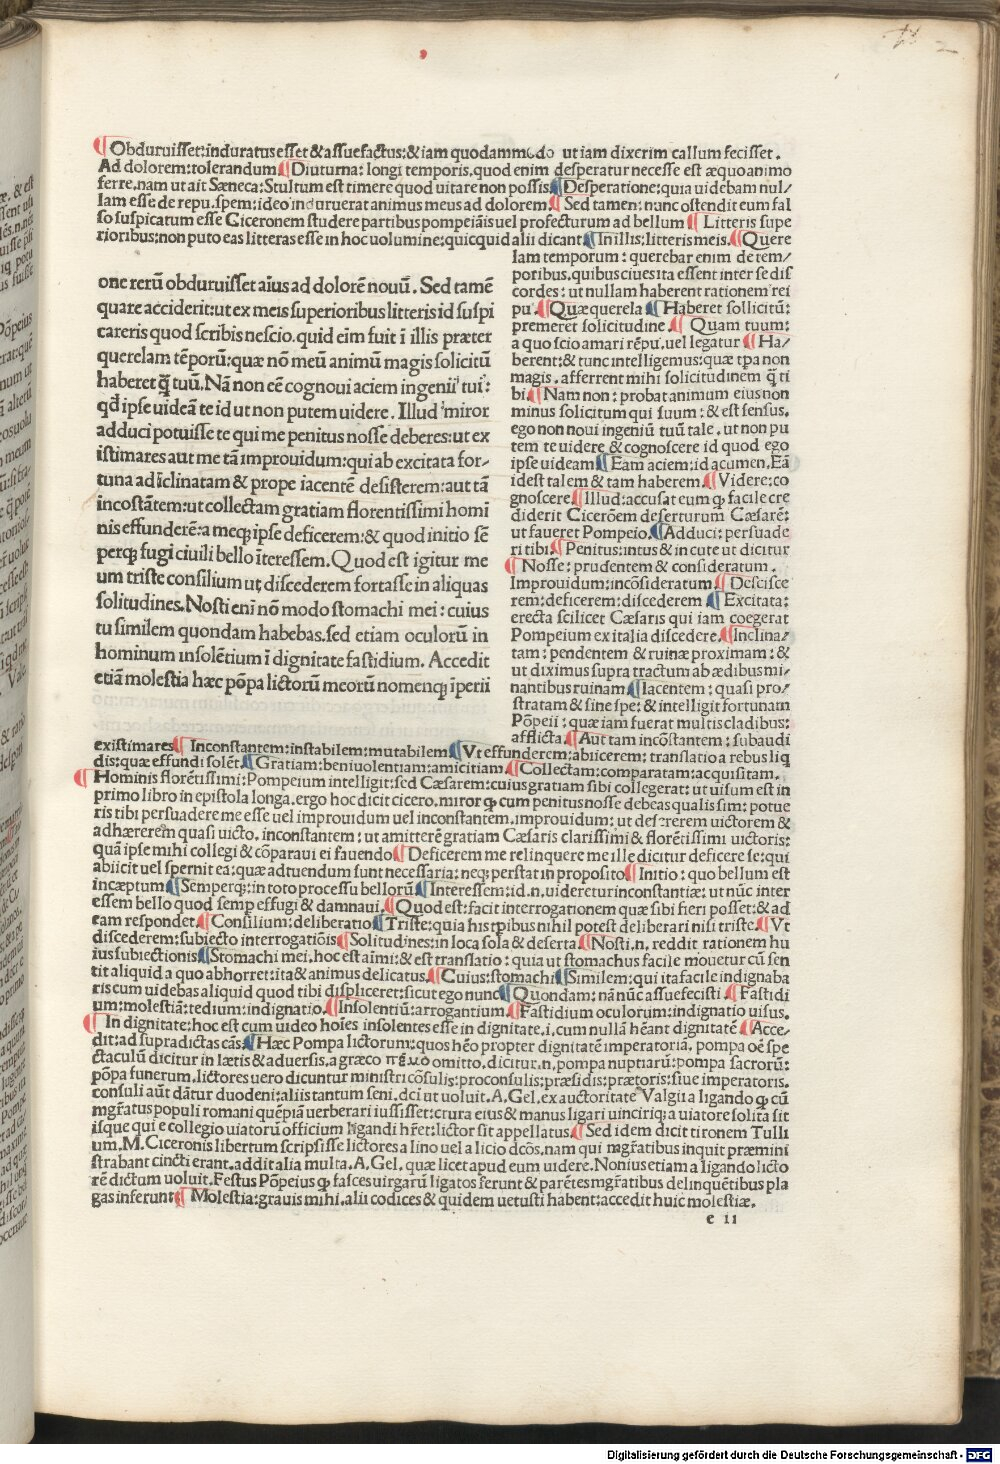 ¶Obduruisset:induratus esset & assuefactus:& iam quodammodo ut iam dixerim callum fecisset.
Ad dolorem:tolerandum¶Diuturna: longi temporis,quod enim desperatur necesse est æquo animo
ferre.nam ut ait Sæneca:Stultum est timere quod uitare non possis.¶Desperatione:quia uidebam nul/
lam esse de repu.spem:ideo induruerat animus meus ad dolorem¶Sed tamen: nunc ostendit eum fal
so suspicatum esse Ciceronem studere partibus pompeiāis uel profecturum ad bellum¶Litteris supe
rioribus:non puto eas litteras esse in hoc uolumine:quicquid alii dicant¶In illis:litteris meis.¶Quere
lam temporum: querebar enim de tem/
poribus.quibus ciues ita essent inter se dis
cordes: ut nullam haberent rationem rei
pu.¶Quæ querela¶Haberet sollicitū:
premeret solicitudine.¶Quam tuum:
a quo scio amari rēpu.uel legatur¶Ha/
berent:& tunc intelligemus:quæ tpa non
magis.afferrent mihi solicitudinem q̄ ti
bi.¶Nam non: probat animum eius non
minus solicitum qui suum:& est sensus.
ego non noui ingeniū tuū tale.ut non pu
tem te uidere & cognoscere id quod ego
ipse uideam¶Eam aciem:id acumen.Eā
idest talem & tam haberem.¶Videre:co
gnoscere.¶Illud:accusat eum qꝫ facile cre
diderit Cicerōem deserturum Cæsarē:
ut faueret Pompeio.¶Adduci: persuade
ri tibi.¶Penitus:intus & in cute ut dicitur
¶Nosse: prudentem & consideratum.
Improuidum:incōsideratum¶Descisce
rem:deficerem:discederem¶Excitata:
erecta scilicet Cæsaris qui iam coegerat
Pompeium ex italia discedere.¶Inclina/
tam: pendentem & ruinæ proximam:&
ut diximus supra tractum ab ædibus mi/
nantibus ruinam¶Iacentem: quasi pro/
stratam & sine spe:& intelligit fortunam
Pōpeii: quæ iam fuerat multis cladibus:
afflicta.¶Aut tam incōstantem: subaudi
one rerū obduruisset aīus ad dolorē nouū. Sed tamē
quare acciderit:ut ex meis superioribus litteris id suspi
careris quod scribis nescio.quid eīm fuit ī illis præter
querelam tēporū:quæ nō meū animū magis solicitū
haberet q̄ tuū.Nā non eē cognoui aciem ingenii tui:
qđ ipse uideā te id ut non putem uidere. Illud miror
adduci potuisse te qui me penitus nosse deberes:ut ex
istimares aut me tā improuidum:qui ab excitata for/
tuna ad īclinatam & prope iacentē desisterem:aut tā
incostātem:ut collectam gratiam florentissimi homi
nis effunderē:a meqꝫ ipse deficerem:& quod initio sē
perqꝫ fugi ciuili bello īteressem.Quod est igitur me
um triste consilium ut discederem fortasse in aliquas
solitudines.Nosti eni nō modo stomachi mei: cuius
tu similem quondam habebas.sed etiam oculorū in
hominum insolētium ī dignitate fastidium. Accedit
etiā molestia hæc pōpa lictorū meorū nomenqꝫ īperii
existimares¶Inconstantem:instabilem:mutabilem¶Vt effunderem:abiicerem: translatio a rebus liq
dis:quæ effundi solēt.¶Gratiam:beniuolentiam:amicitiam.¶Collectam:comparatam:acquisitam.
¶Hominis florētissimi:Pompeium intelligit:sed Cæsarem:cuius gratiam sibi collegerat: ut uisum est in
primo libro in epistola longa.ergo hoc dicit cicero.miror qꝫ cum penitus nosse debeas qualis sim: potue
ris tibi persuadere me esse uel improuidum uel inconstantem.improuidum: ut desererem uictorem &
adhærerem quasi uicto.inconstantem: ut amitterē gratiam Cæsaris clarissimi & florētissimi uictoris:
quā ipse mihi collegi & cōparaui ei fauendo¶Deficerem me relinquere me:ille dicitur deficere se:qui
abiicit uel spernit ea: quæ ad tuendum sunt necessaria: neqꝫ perstat in proposito¶Initio: quo bellum est
incæptum¶Semperqꝫ:in toto processu bellorū¶Interessem:id.n.uideretur inconstantiæ:ut nūc inter
essem bello quod semp effugi & damnaui.¶Quod est:facit interrogationem quæ sibi fieri posset:& ad
eam respondet¶Consilium:deliberatio¶Triste:quia his tpibus nihil potest deliberari nisi triste.¶Vt
discederem:subiecto interrogatiōis¶Solitudines:in loca sola & deserta.¶Nosti.n.reddit rationem hu
ius subiectionis¶Stomachi mei.hoc est aīmi:& est translatio: quia ut stomachus facile mouetur cū sen
tit aliquid a quo abhorret:ita & animus delicatus.¶Cuius:stomachi¶Similem:qui ita facile indignaba
ris cum uidebas aliquid quod tibi displiceret:sicut ego nunc¶Quondam:nā nūc assuefecisti¶Fastidi
um:molestiā:tedium:indignatio.¶Insolentiū:arrogantium.¶Fastidium oculorum:indignatio uisus.
¶In dignitate:hoc est cum uideo hoīes insolentes esse in dignitate.i.cum nullā hēant dignitatē¶Acce/
dit:ad supradictas cās.¶Hæc Pompa lictorum:quos hēo propter dignitatē imperatoriā. pompa oē spe
ctaculū dicitur in lætis & aduersis.a græco πέμπω omitto.dicitur.n.pompa nuptiarū:pompa sacrorū:
pōpa funerum.lictores uero dicuntur ministri cōsulis:proconsulis:præsidis:prætoris:siue imperatoris.
consuli aūt dātur duodeni:aliis tantum seni.dci ut uoluit.A.Gel.ex auctoritate Valgii a ligando qꝫ cū
mgr̄atus populi romani quēpiā uerberari iussisset:crura eius & manus ligari uinciriqꝫ a uiatore solita sit
isque qui e collegio uiatorū officium ligandi hr̄et:lictor sit appellatus.¶Sed idem dicit tironem Tulli
um.M.Ciceronis libertum scripsisse lictores a lino uel a licio dcōs.nam qui mgr̄atibus inquit præmini
strabant cincti erant.addit alia multa.A.Gel.quæ licet apud eum uidere.Nonius etiam a ligando licto
rē dictum uoluit.Festus Pōpeius qꝫ fasces uirgarū ligatos ferunt & parētes mgr̄atibus delinquētibus pla
gas inferunt¶Molestia:grauis mihi.alii codices & quidem uetusti habent:accedit huic molestiæ.
e ii
Digitalisierung gefördert durch die Deutsche Forschungsgemeinschaft - DFG